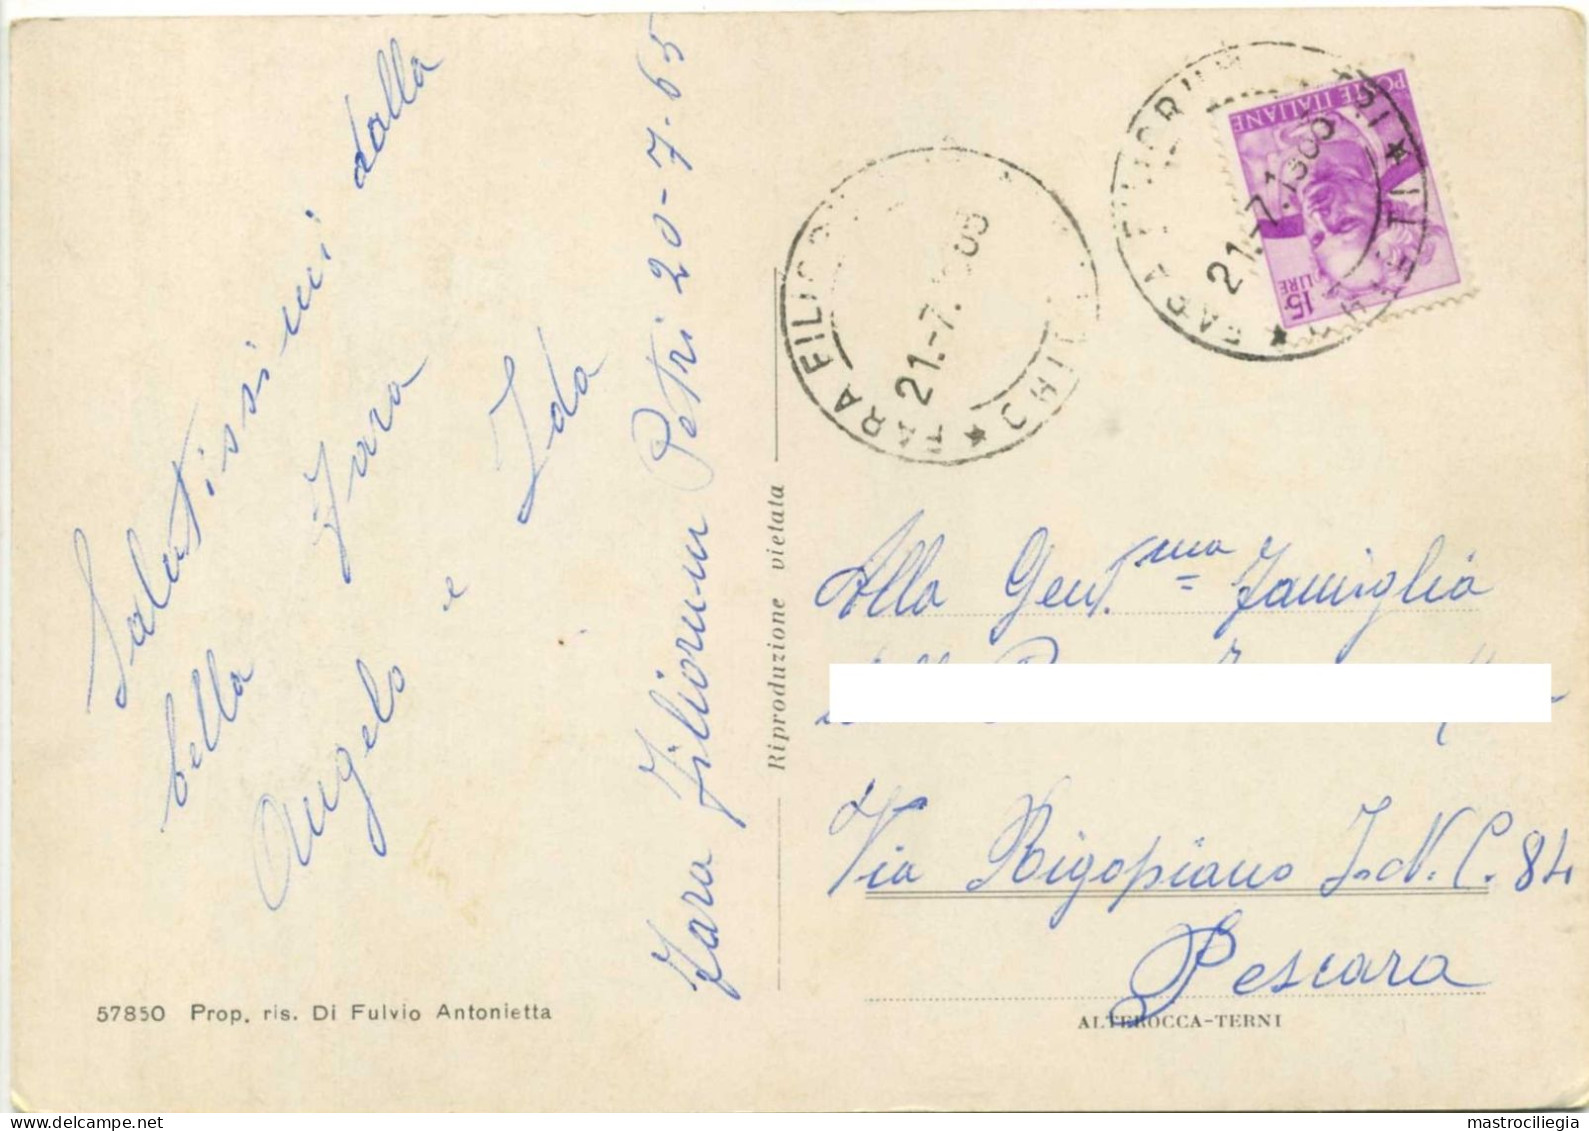 Salutissimi dalla
bella Fara
Angelo e Ida
Fara Filiorum Petri 20-7-65
57850 Prop. ris. Di Fulvio Antonietta
Riproduzione vietata
FARA FILIO
CHIE
21.-7.
FARA FILIORUM
CHIETI
21.-7.19
POSTE ITALIANE
15 LIRE
Alla Gent.ma Famiglia
Via Rigopiano I.N.C. 84
Pescara
ALTEROCCA-TERNI
mastrociliegia